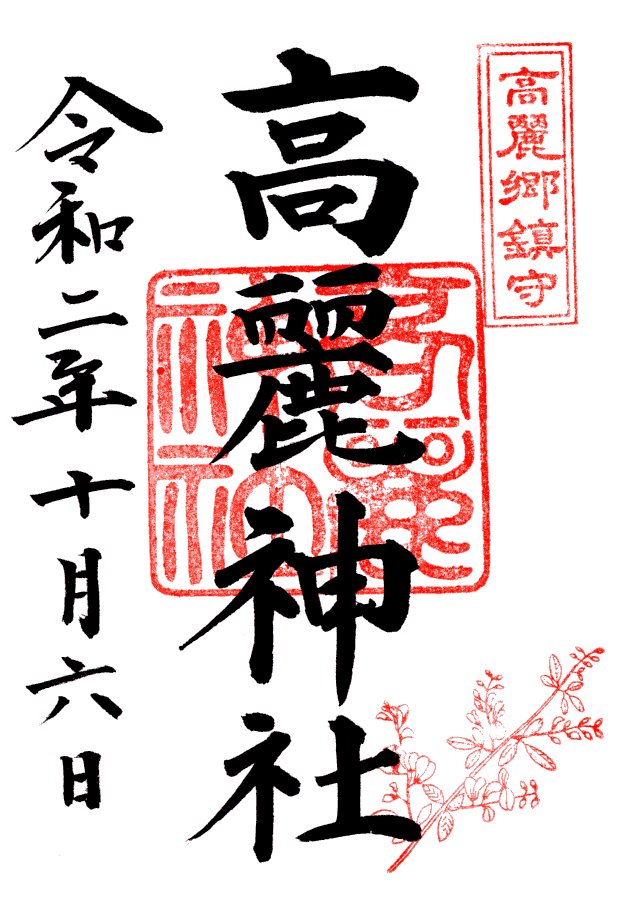 高麗郷鎮守
高麗神社
令和二年十月六日